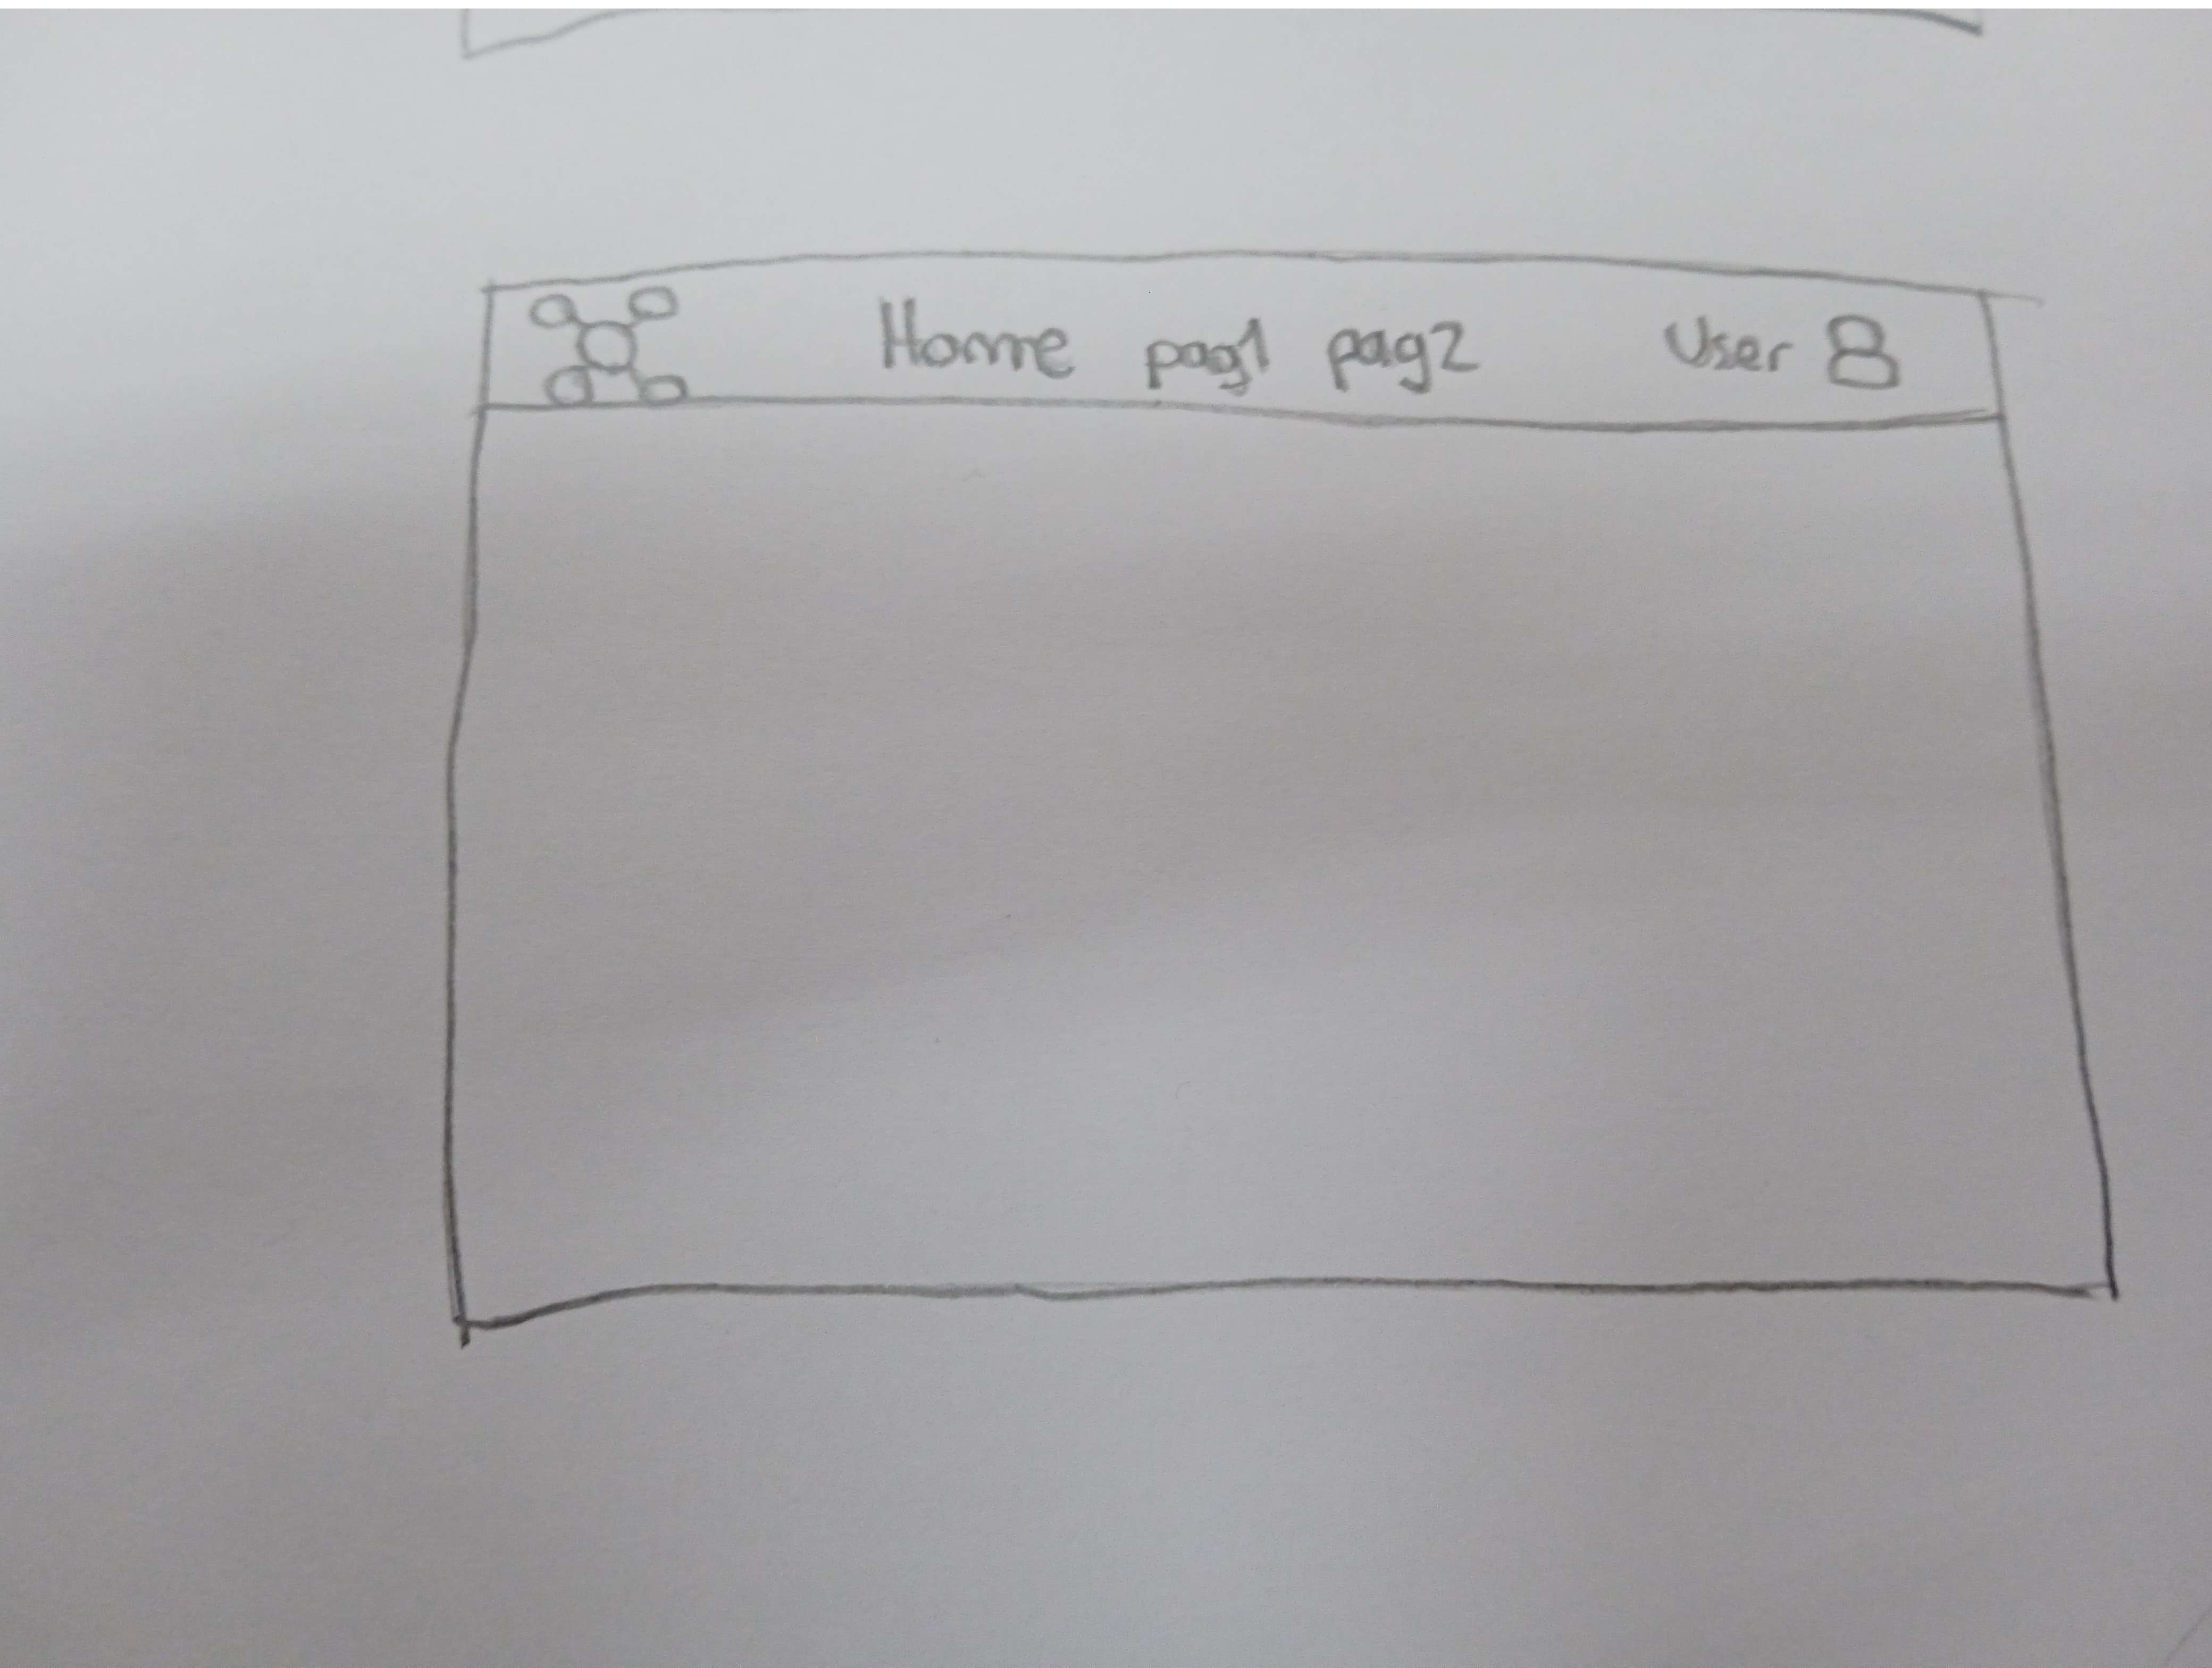 Home pag1 pag2 User